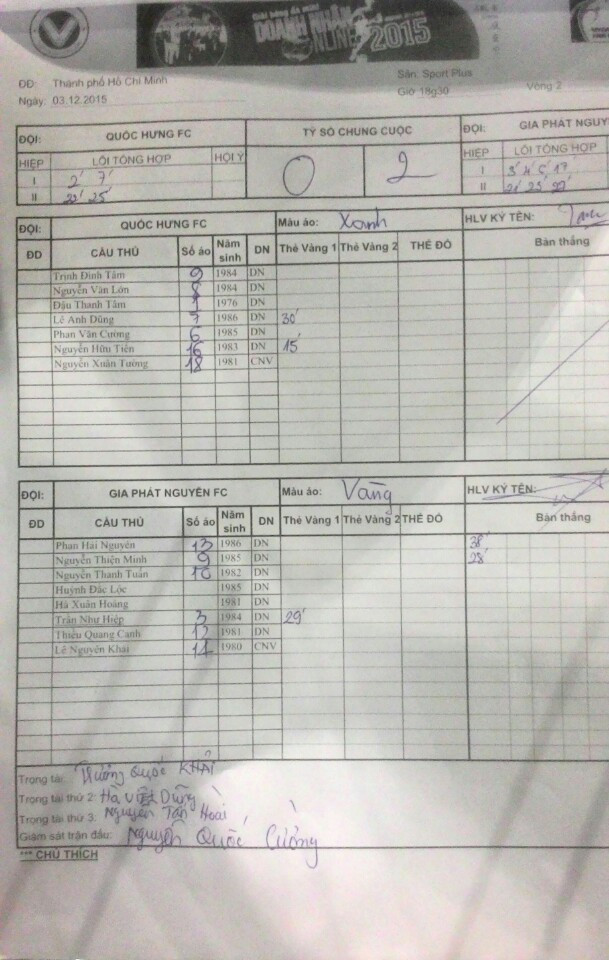 Giải bóng đá mini
DOANH NHÂN
ONLINE 2015
ĐĐ: Thành phố Hồ Chí Minh Sân: Sport Plus
Ngày: 03.12.2015 Giờ 18g30 Vòng 2
ĐỘI: QUỐC HƯNG FC TỶ SỐ CHUNG CUỘC ĐỘI: GIA PHÁT NGUYÊ
HIỆP LỖI TỔNG HỢP HỘI Ý 0 2 HIỆP LỖI TỔNG HỢP
I 2' 7' I 3' 4' 5' 17'
II 23' 25' II 21' 23
ĐỘI: QUỐC HƯNG FC Màu áo: Xanh HLV KÝ TÊN:
ĐD CẦU THỦ Số áo Năm sinh DN Thẻ Vàng 1 Thẻ Vàng 2 THẺ ĐỎ Bàn thắng
Trịnh Đình Tâm 9 1984 DN
Nguyễn Văn Lớn 8 1984 DN
Đậu Thanh Tâm 1976 DN
Lê Anh Dũng 7 1986 DN 30'
Phan Văn Cường 6 1985 DN
Nguyễn Hữu Tiến 16 1983 DN 15'
Nguyễn Xuân Tường 18 1981 CNV
ĐỘI: GIA PHÁT NGUYÊN FC Màu áo: Vàng HLV KÝ TÊN:
ĐD CẦU THỦ Số áo Năm sinh DN Thẻ Vàng 1 Thẻ Vàng 2 THẺ ĐỎ Bàn thắng
Phan Hải Nguyên 13 1986 DN 38'
Nguyễn Thiện Minh 9 1985 DN 28'
Nguyễn Thanh Tuấn 10 1982 DN
Huỳnh Đắc Lộc 1985 DN
Hà Xuân Hoàng 1981 DN
Trần Như Hiệp 3 1984 DN 29'
Thiều Quang Canh 1981 DN
Lê Nguyên Khải 11 1980 CNV
Trọng tài: Trương Quốc KHẢI
Trọng tài thứ 2: Hà Việt Dũng
Trọng tài thứ 3: Nguyễn Tấn Hoài
Giám sát trận đấu: Nguyễn Quốc Cường
*** CHÚ THÍCH